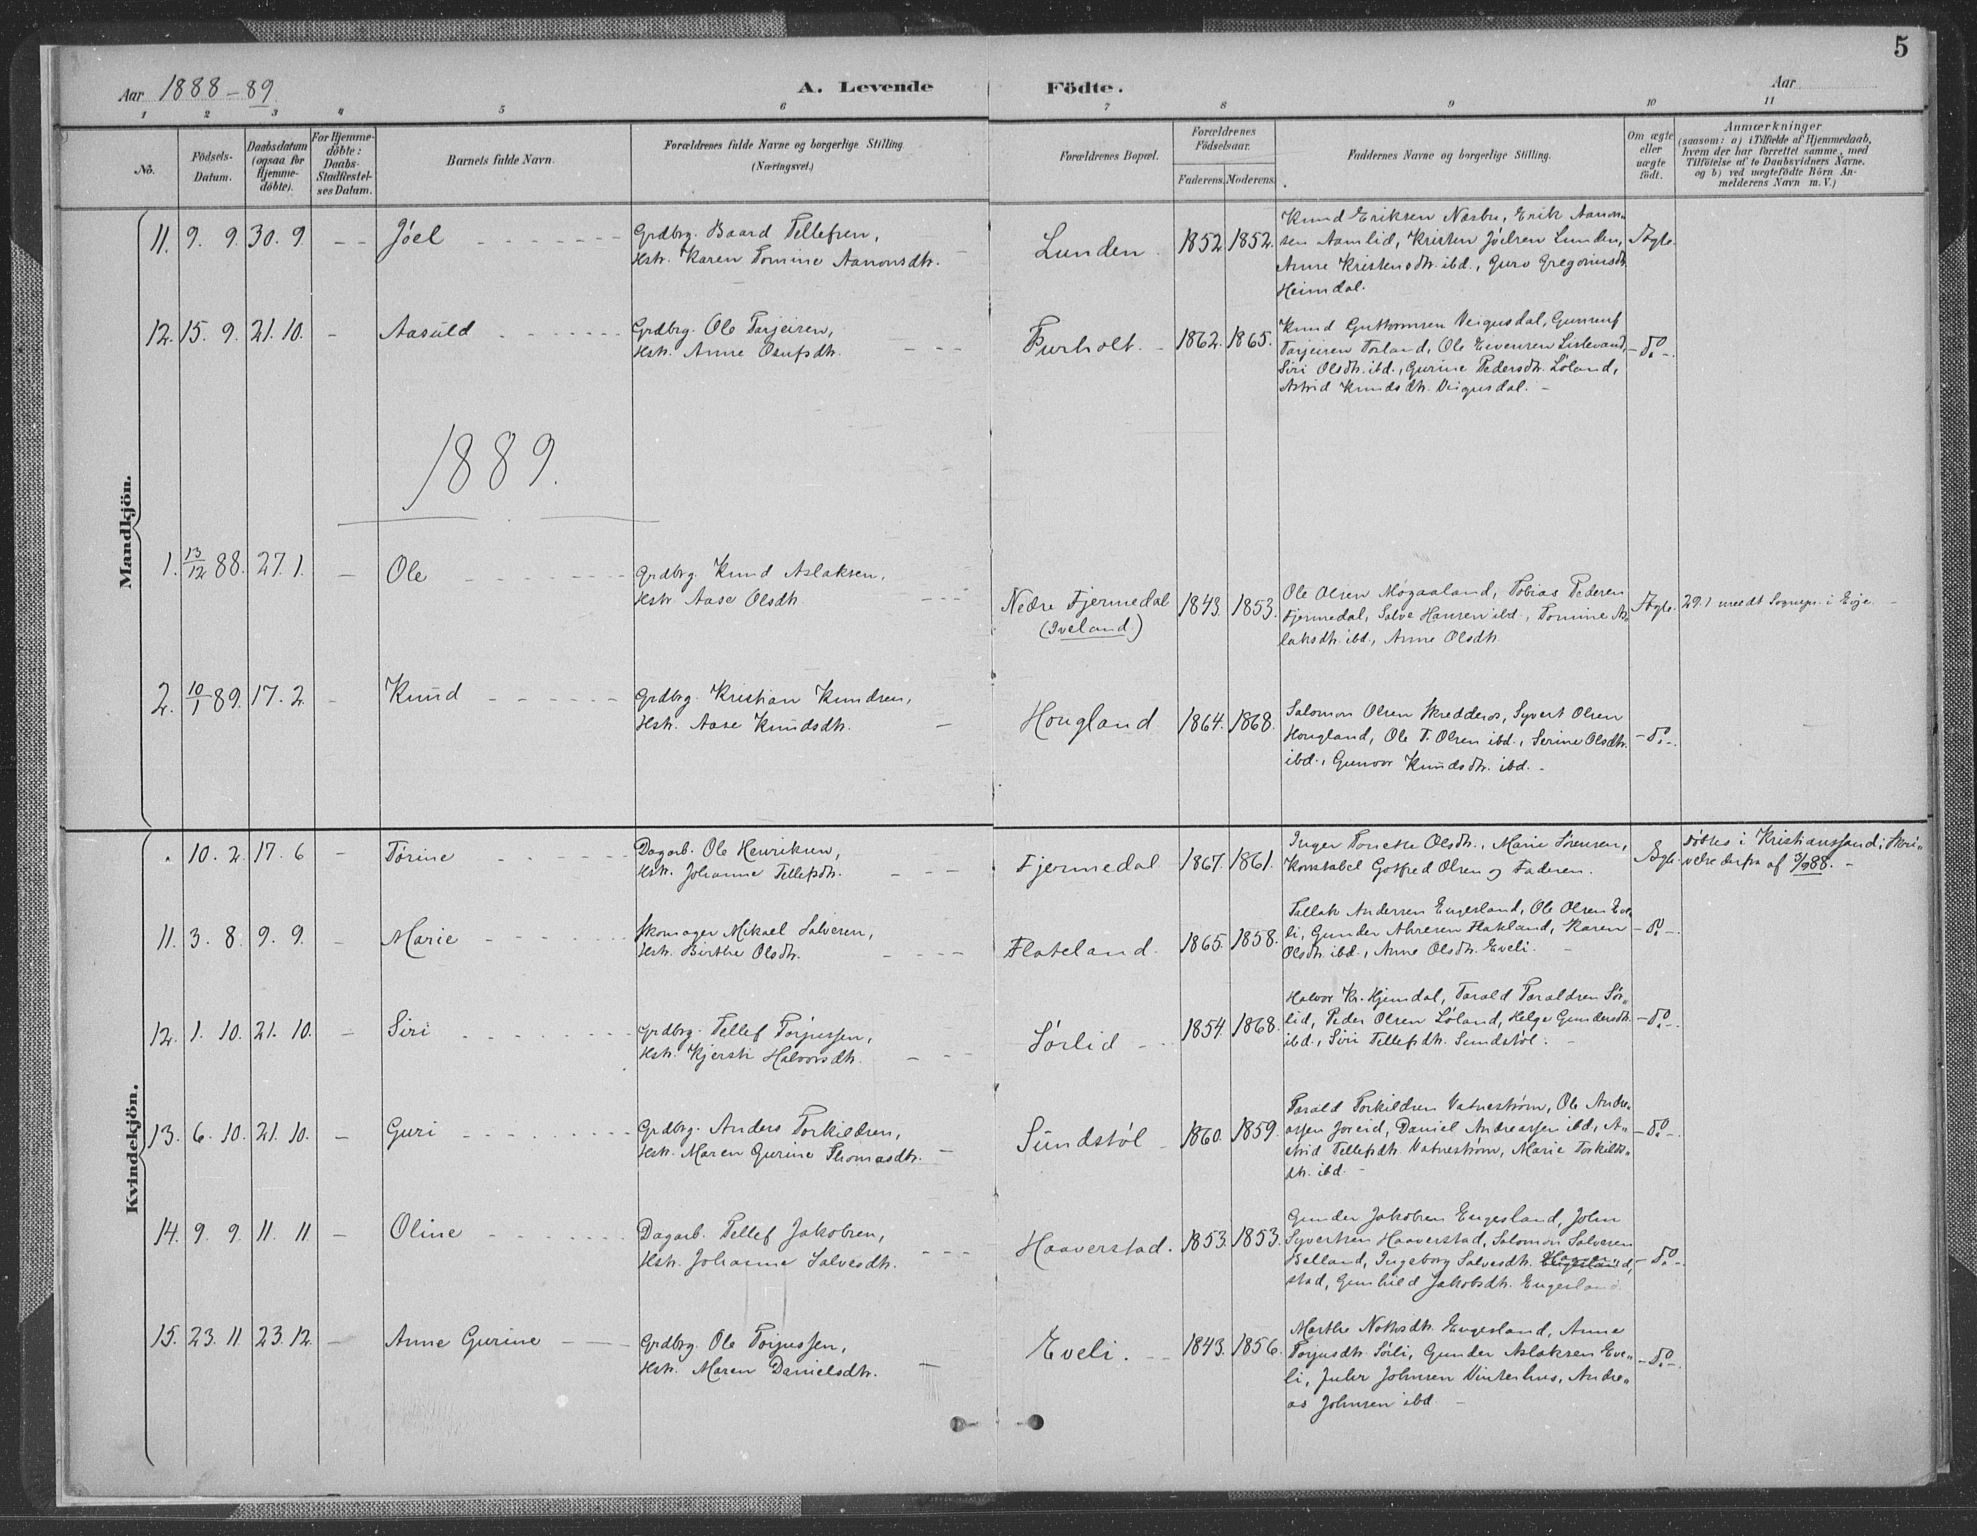 5
Aar 1888-89
A. Levende Födte.
Aar
1 2 3 4 5 6 7 8 9 10 11
No.
Födsels-Datum.
Daabsdatum (ogsaa for Hjemme-döbte).
For Hjemme-döbte: Daabs-Stadfæstel-ses Datum.
Barnets fulde Navn.
Forældrenes fulde Navne og borgerlige Stilling (Næringsvei.)
Forældrenes Bopæl.
Forældrenes Födselsaar.
Faderens. Moderens.
Faddernes Navne og borgerlige Stilling.
Om ægte eller uægte födt.
Anmærkninger
(saasom: a) i Tilfælde af Hjemmedaab,
hvem der har forrettet samme, med
Tilföielse af to Daabsvidners Navne.
og b) ved uægtefödte Börn An-
melderens Navn m. V.)
Mandkjön.
11. 9. 9. 30. 9 - - Jóel
Grdbrg. Baard Tellefsen,
Hstr. Karen Tomine Aanonsdtr.
Lunden. 1852. 1852.
Knud Eriksen Næsbø, Erik Aanon-
sen Aamlid, Kristen Jóelsen Lunden,
Anne Kristensdtr. ibd., Guro Gregoriusdtr.
Heimdal.
Ægte.
12. 15. 9. 21. 10. - Aasuld
Grdbrg. Ole Tarjeisen,
Hstr. Anne Osufsdtr.
Furholt. 1862. 1865.
Knud Guttormsen Veigusdal, Gunnuf
Tarjeisen Forland, Ole Evensen Listevand,
Siri Olsdtr. ibd., Gurine Pedersdtr. Lóland,
Astrid Knudsdtr. Veigusdal.
- do -
1889.
1. 13/12 88. 27. 1. - Ole
Grdbrg. Knud Aslaksen,
Hstr. Aase Olsdtr.
Nedre Fjermedal
(Iveland.)
1843. 1853.
Ole Olsen Møgaaland, Tobias Pedersen
Fjermedal, Salve Hansen ibd., Tomine As-
laksdtr. ibd., Anne Olsdtr.
Ægte. 29.1 meedt Sognepr. i Evje.
2. 10/1 89. 17. 2 - Knud
Grdbrg. Kristian Knudsen,
Hstr. Aase Knudsdtr.
Hougland 1864. 1868.
Salomon Olsen Skredderos, Syvert Olsen
Hougland, Ole T. Olsen ibd., Serine Olsdtr.
ibd., Gunvor Knudsdtr. ibd.
- do -
Kvindekjön.
. 10. 2. 17. 6 - Tórine
Dagarb. Ole Henriksen,
Hstr. Johanne Tellefsdtr.
Fjermedal 1867. 1861.
Inger Tonette Olsdtr., Marie Sørensen,
Konstabel Gotfred Olsen og Faderen.
Ægte. Døbtes i Kristianssand; Skri-
velse derfra af 3/9 88.
11. 3. 8. 9. 9. - Marie
Skomager Mikael Salvesen,
Hstr. Birthe Olsdtr.
Flateland. 1865. 1858.
Tallak Andersen Engesland, Ole Olsen Eve-
li, Gunder Ahresen Flateland, Karen
Olsdtr. ibd., Anne Olsdtr. Eveli.
- do -
12. 1. 10. 21. 10. - Siri
Grdbrg. Tellef Tórjussen,
Hstr. Kjersti Halvorsdtr.
Sórlid 1854. 1868.
Halvor Kr. Hjemdal, Tarald Taraldsen Sór-
lid, Peder Olsen Lóland, Helge Gundersdtr.
ibd., Siri Tellefsdtr. Sundstól.
- do -
13. 6. 10. 21. 10. - Guri
Grdbrg. Anders Torkildsen,
Hstr. Maren Gurine Thomasdtr.
Sundstól 1860. 1859.
Tarald Torkildsen Vatnestrøm, Ole Andre-
assen Joreid, Daniel Andreassen ibd., A-
strid Tellefsdtr. Vatnestrøm, Marie Torkilds-
dtr. ibd.
- do -
14. 9. 9. 11. 11 - Oline
Dagarb. Tellef Jakobsen,
Hstr. Johanne Salvesdtr.
Haaverstad. 1853. 1853.
Gunder Jakobsen Engesland, John
Syvertsen Haaverstad, Salomon Salvesen
Belland, Ingeborg Salvesdtr. Haaver-
stad, Gunhild Jakobsdtr. Engesland.
- do -
15. 23. 11. 23. 12. - Anne Gurine
Grdbrg. Ole Torjussen,
Hstr. Maren Danielsdtr.
Eveli. 1843. 1856.
Marthe Notosdtr. Engesland, Anne
Torjusdtr. Sórli, Gunder Aslaksen Eve-
li, Juhr Johnsen Vinterhus, Andre-
as Johnsen ibd.
- do -